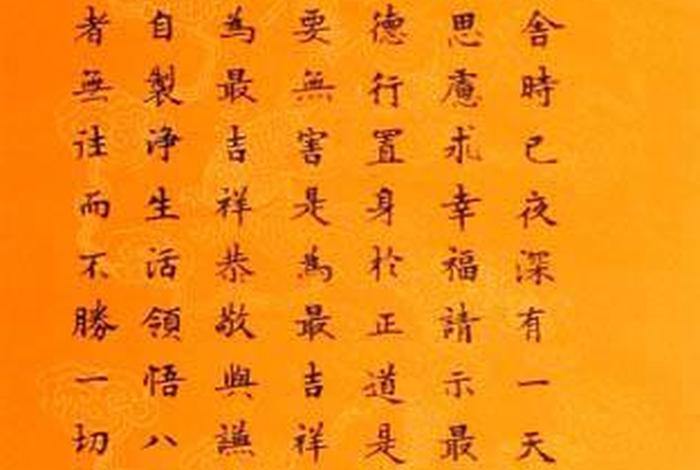 舍時已夜深有一天
思慮求幸福請示最
德行置身於正道是
要無害是為最吉祥
為最吉祥恭敬與謙
自製净生活領悟八
者無往而不勝一切